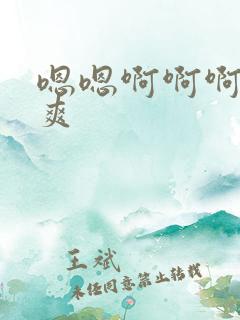 嗯嗯啊啊啊
爽
王斌
未经同意禁止转载